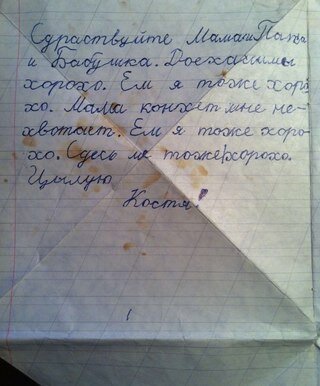 Сдраствуйте Мама и Папа
и Бабушка. Доехали мы
хорохо. Ем я тоже хоро
хо. Мама конхет мне не-
хвотает. Ем я тоже хоро-
хо. Сдесь мне тоже хорохо.
Цылую
Костя!